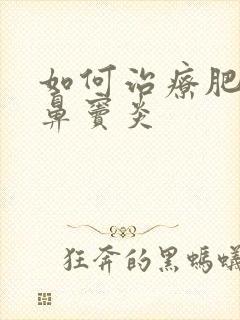 如何治療肥
鼻竇炎
狂奔的黑螞蟻